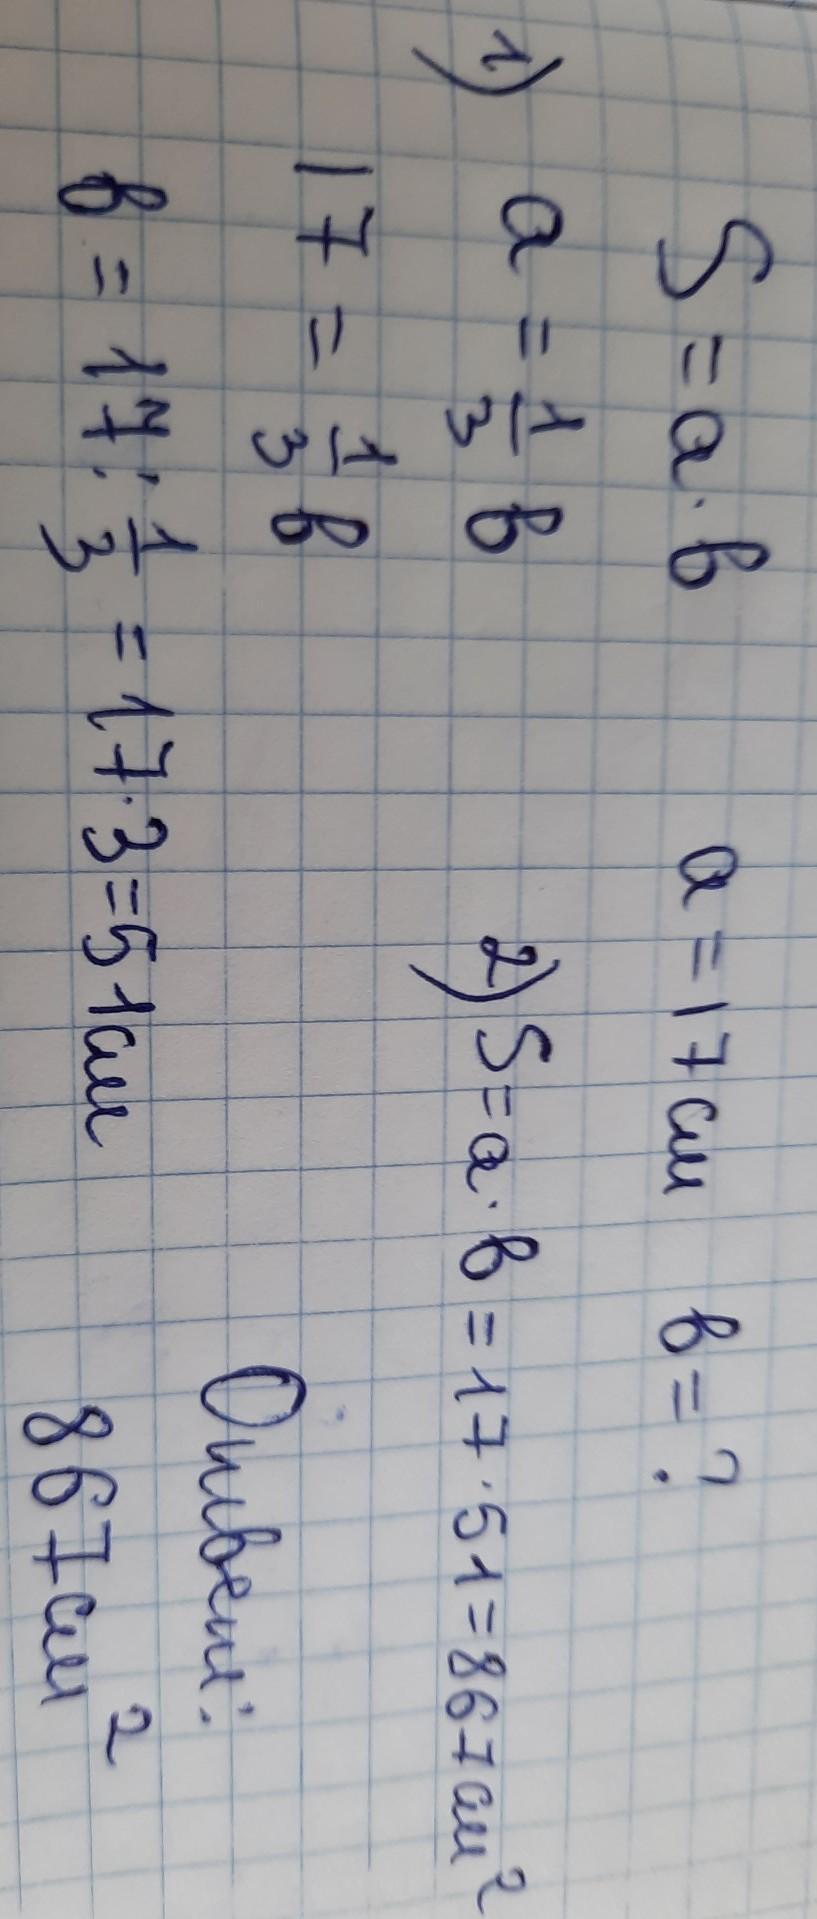 S = a · b a = 17 см b = ?
1) a = 1/3 b
17 = 1/3 b
b = 17 : 1/3 = 17 · 3 = 51 см
2) S = a · b = 17 · 51 = 867 см²
Ответ:
867 см²